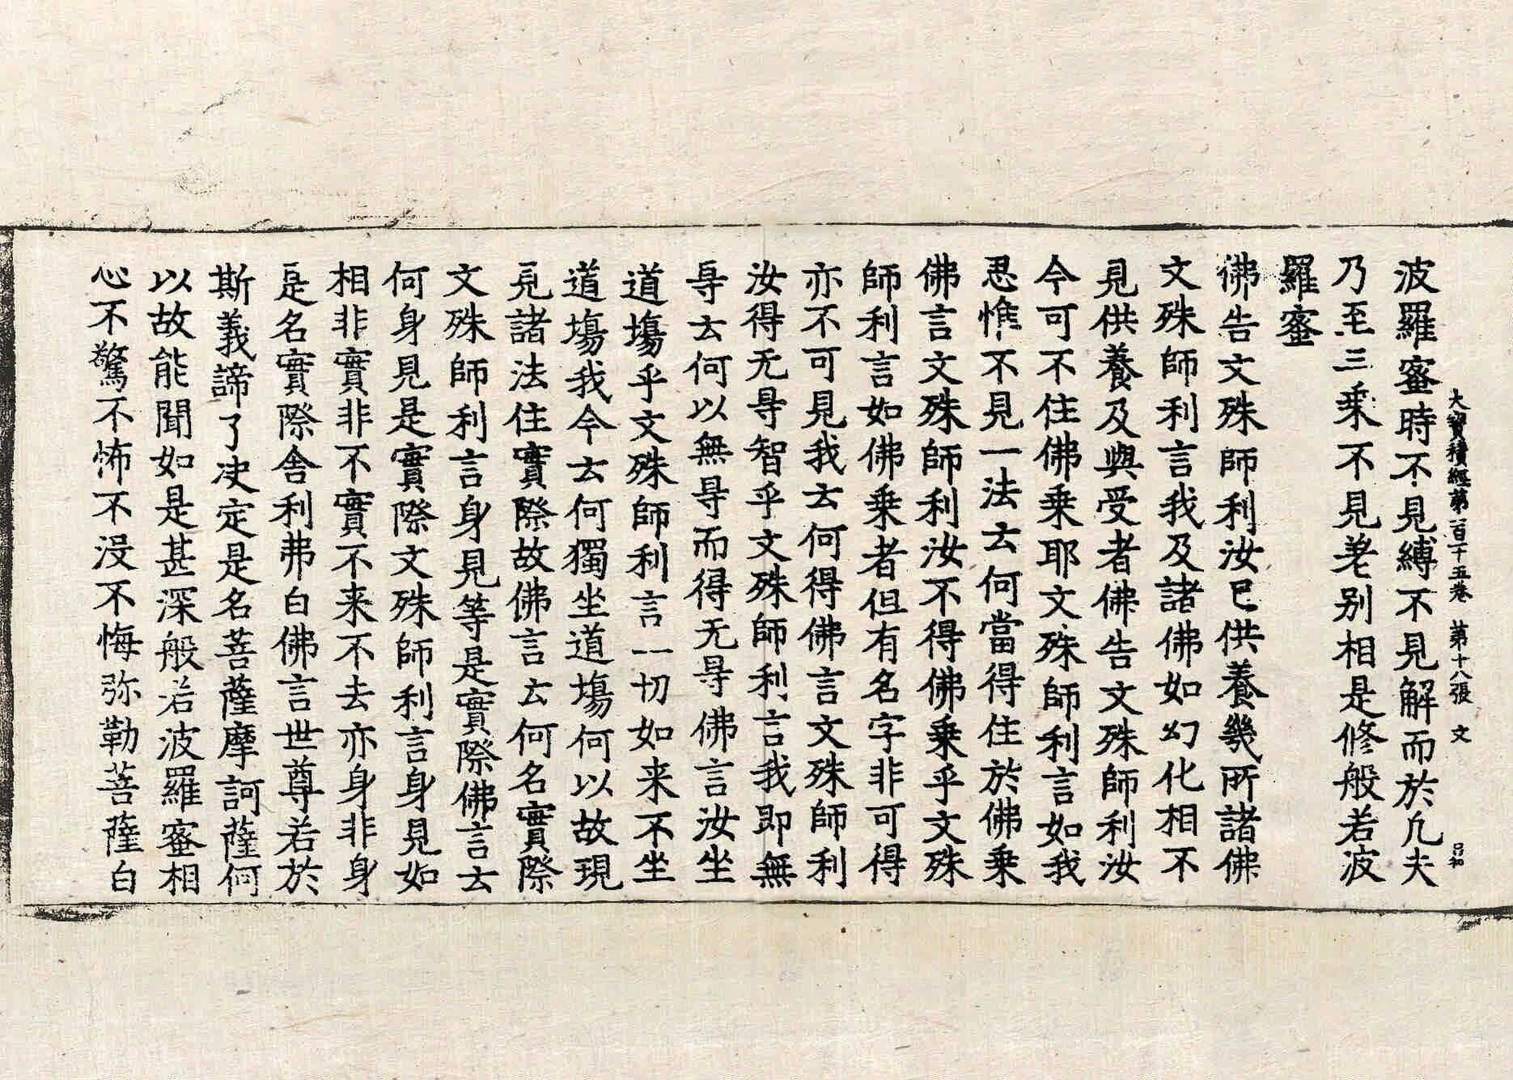 大寶積經第一百十五卷　第十八張　文
波羅蜜時不見縛不見解而於凡夫
乃至三乘不見差别相是修般若波
羅蜜
佛告文殊師利汝已供養幾所諸佛
文殊師利言我及諸佛如幻化相不
見供養及與受者佛告文殊師利汝
今可不住佛乘耶文殊師利言如我
思惟不見一法云何當得住於佛乘
佛言文殊師利汝不得佛乘乎文殊
師利言如佛乘者但有名字非可得
亦不可見我云何得佛言文殊師利
汝得无㝵智乎文殊師利言我即無
㝵云何以無㝵而得无㝵佛言汝坐
道塲乎文殊師利言一切如来不坐
道塲我今云何獨坐道塲何以故現
見諸法住實際故佛言云何名實際
文殊師利言身見等是實際佛言云
何身見是實際文殊師利言身見如
相非實非不實不来不去亦身非身
是名實際舍利弗白佛言世尊若於
斯義諦了决定是名菩薩摩訶薩何
以故能聞如是甚深般若波羅蜜相
心不驚不怖不没不悔弥勒菩薩白